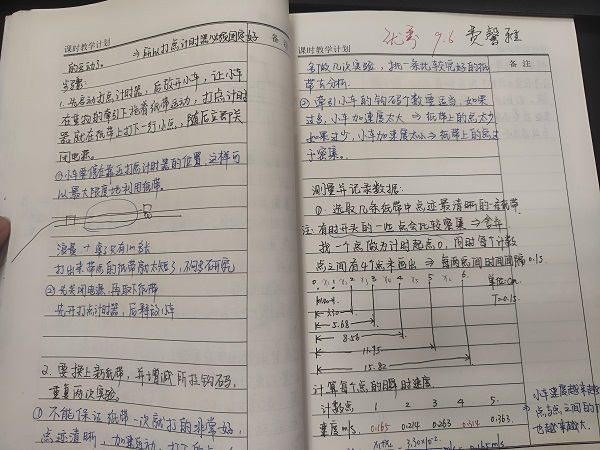 课时教学计划
备注
⇒所以打点计时器必须固定好
步骤:
1. 先启动打点计时器,后放开小车,让小车
在重物的牵引下拖着纸带运动,打点计时
器就在纸带上打下一行小点,随后立即关
闭电源。
①小车要停在靠近打点计时器的位置,这样可
以最大限度地利用纸带。
浪费
打出来带点的纸带就太短了,不够去研究
②先关闭电源,再取下纸带
先开打点计时器,后释放小车
2. 要换上新纸带,并增减所挂钩码,
重复两次实验。
①不能保证纸带一次就打的非常好,
点迹清晰,
优秀 9.6 贾馨雅
课时教学计划
备注
多做几次实验,挑一条比较完好的纸
带去分析
②牵引小车的钩码个数要适当,如果
过多,小车加速度太大⇒纸带上的点太少
如果过少,小车加速度太小⇒纸带上的点过
于密集。
测量并记录数据:
①. 选取几条纸带中点迹最清晰的一条纸带.
注: 有时开头的一些点会比较密集⇒舍弃
找一个点做为计时起点0,同时每个计数
点之间有4个点未画出⇒每两点间时间间隔0.1s.
0 x₁ 1 x₂ 2 x₃ 3 x₄ 4 x₅ 5 x₆ 6
单位:cm
T=0.1s
3.30
5.68
8.56
11.95
15.82
计算每个点的瞬时速度
计数点 1 2 3 4 5
速度 m/s 0.165 0.214 0.263 0.314 0.363
⇒小车速度越来越
点与点之间的
也越来越大